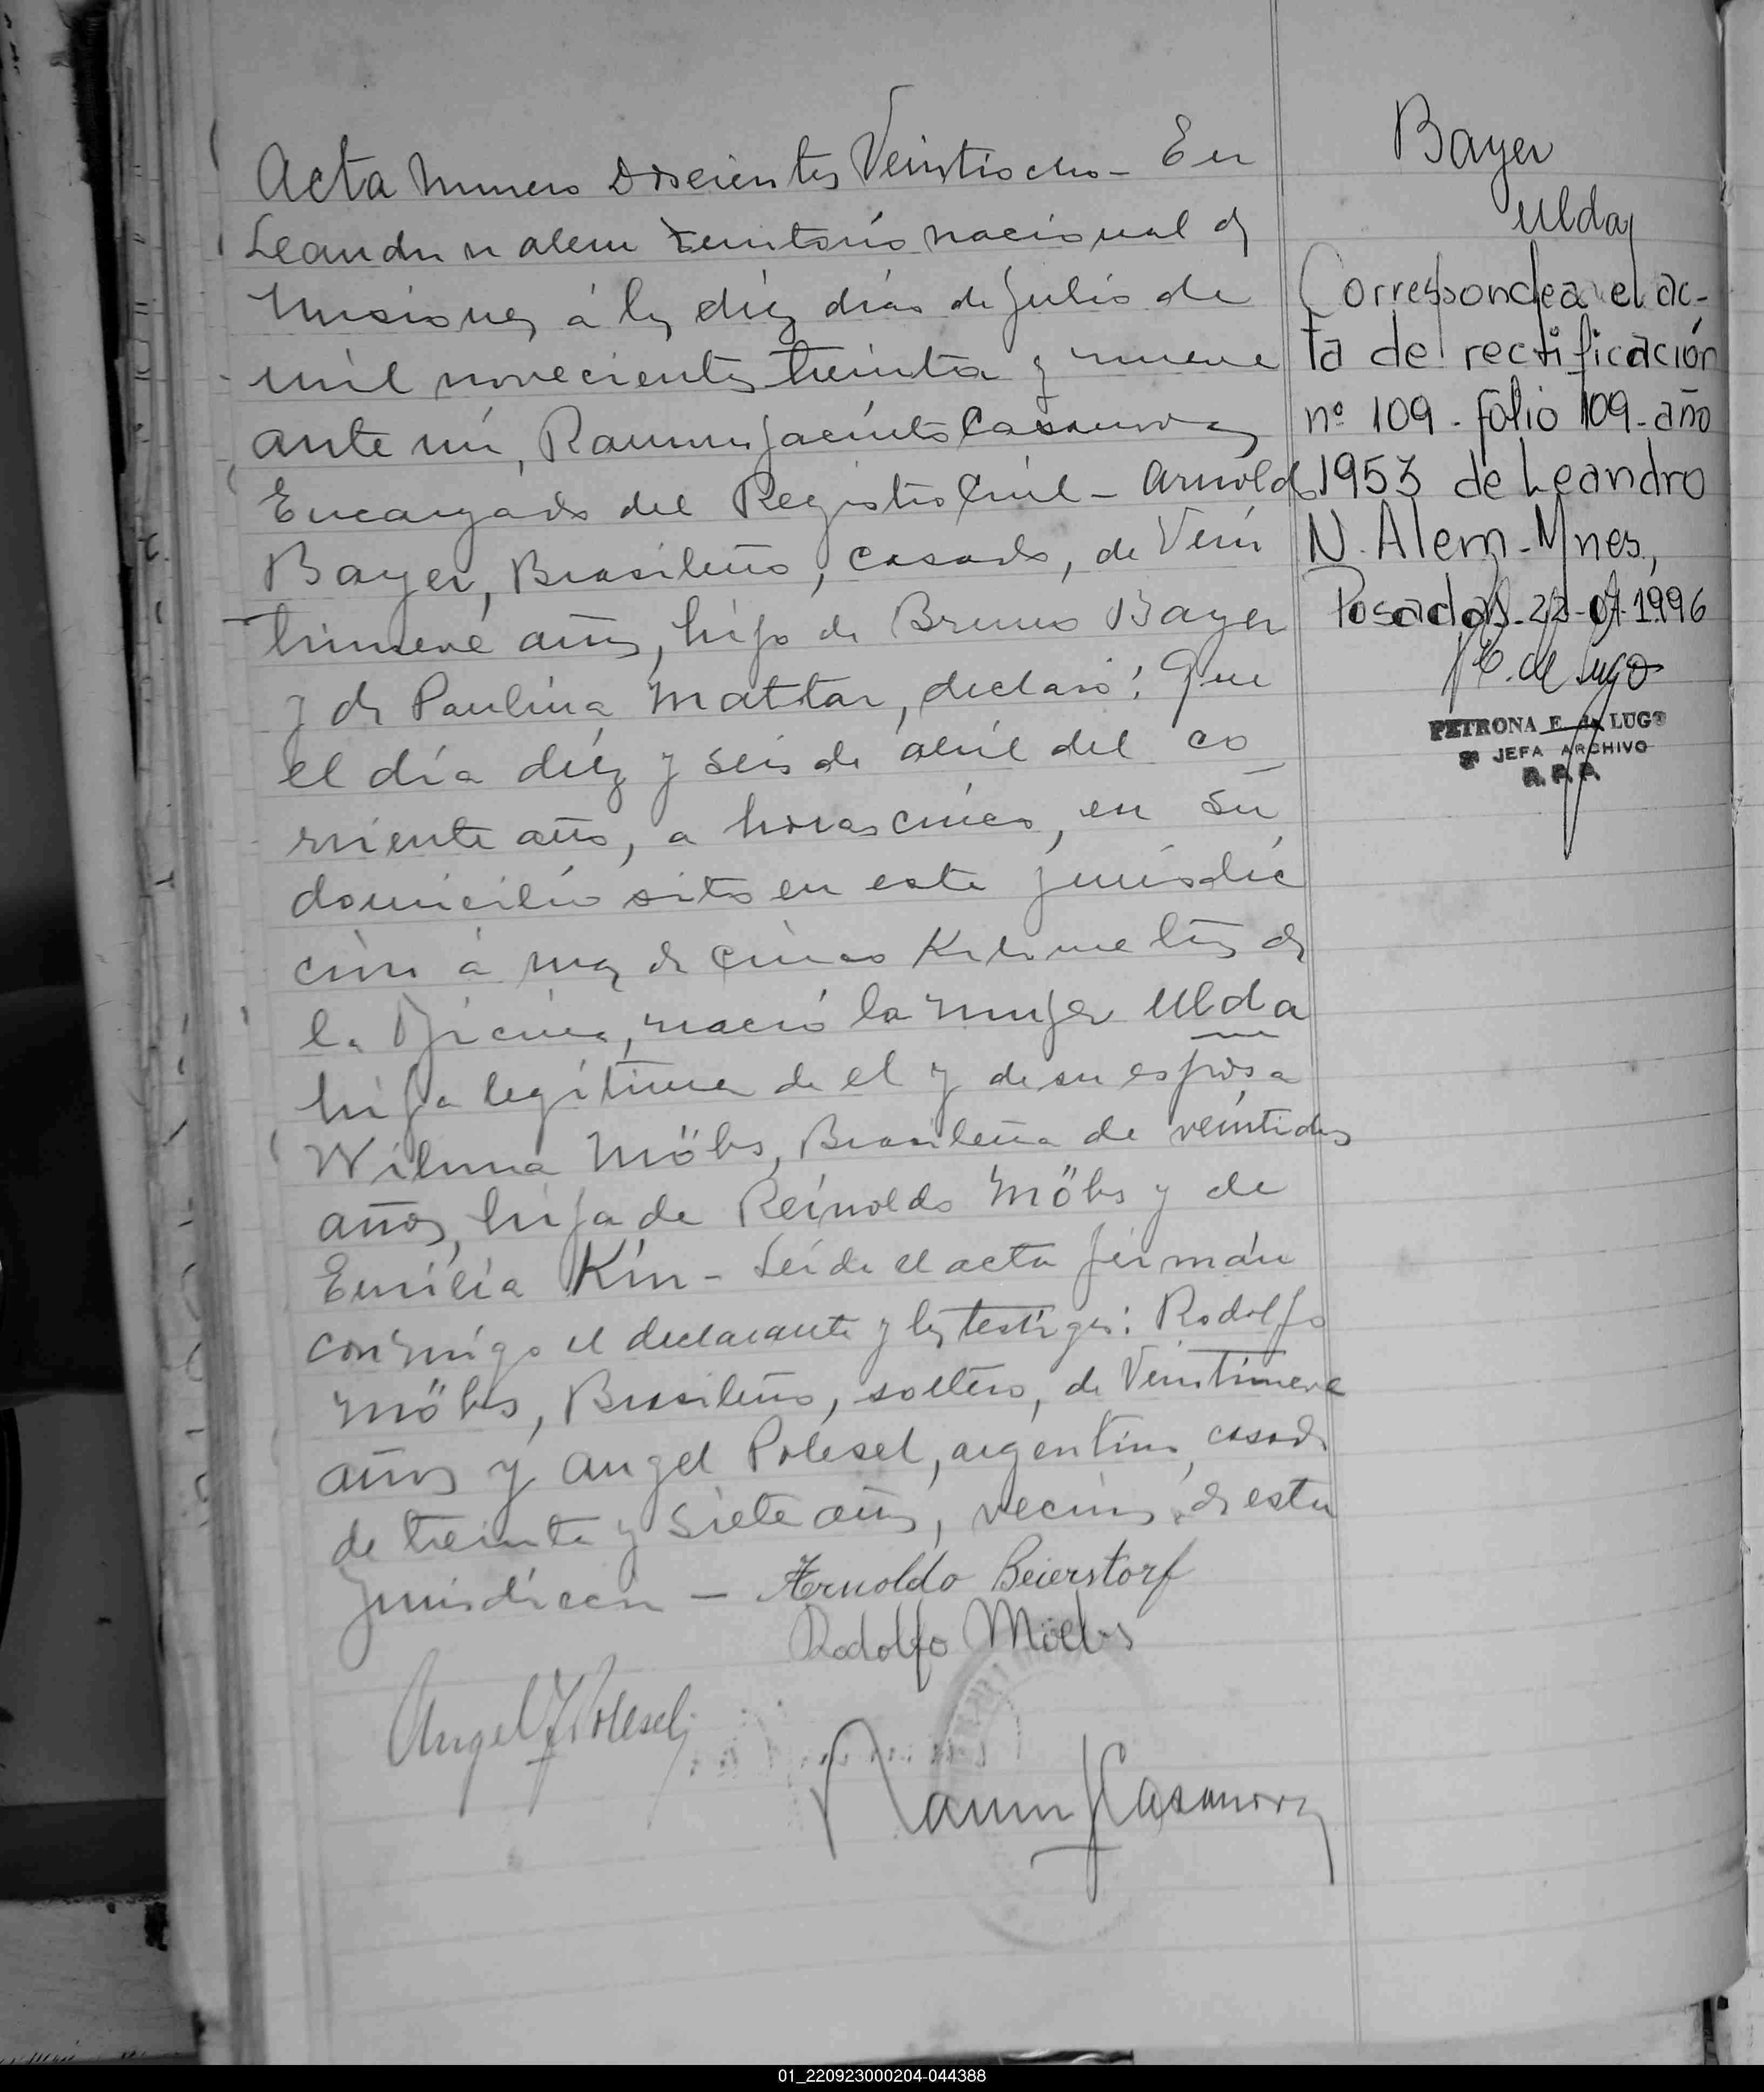 Acta numero Doscientos Veintiocho - En
Leandro n alem territorio nacional de
Misiones, á los diez dias de Julio de
mil novecientos treinta y nueve
ante mi, Ramon Jacinto Casanova,
Encargado del Registro Civil - Arnoldo
Bayer, Brasileño, casado, de Vein
tinueve años, hijo de Bruno Bayer
y de Paulina Mattar, declaró: Que
el día diez y seis de abril del co
rriente año, a horas cinco, en su
domicilio sito en esta jurisdic
cion á mas de cinco Kilometros de
la Oficina, nació la mujer Ulda
hija legítima de el y de su esposa
Wilma Möbs, Brasileña de veintidos
años, hija de Reinoldo Möbs y de
Emilia Kin - Leida el acta firmán
conmigo el declarante y los testigos: Rodolfo
Möbs, Brasileño, soltero, de Veintinueve
años y Angel Polesel, argentino, casado
de treinta y siete años, vecinos de esta
Jurisdiccion - Arnoldo Beierstorf
Rodolfo Moebs
Angel J Polesel
Ramon J Casanova
Bayer
Ulda
Corresponde a el ac-
ta de rectificación
nº 109 - folio 109 - año
1953 de Leandro
N. Alem - Mnes,
Posadas - 22-07-1996
P E. de Lugo
PETRONA E. de LUGO
JEFA ARCHIVO
R. P. P.
01_220923000204-044388